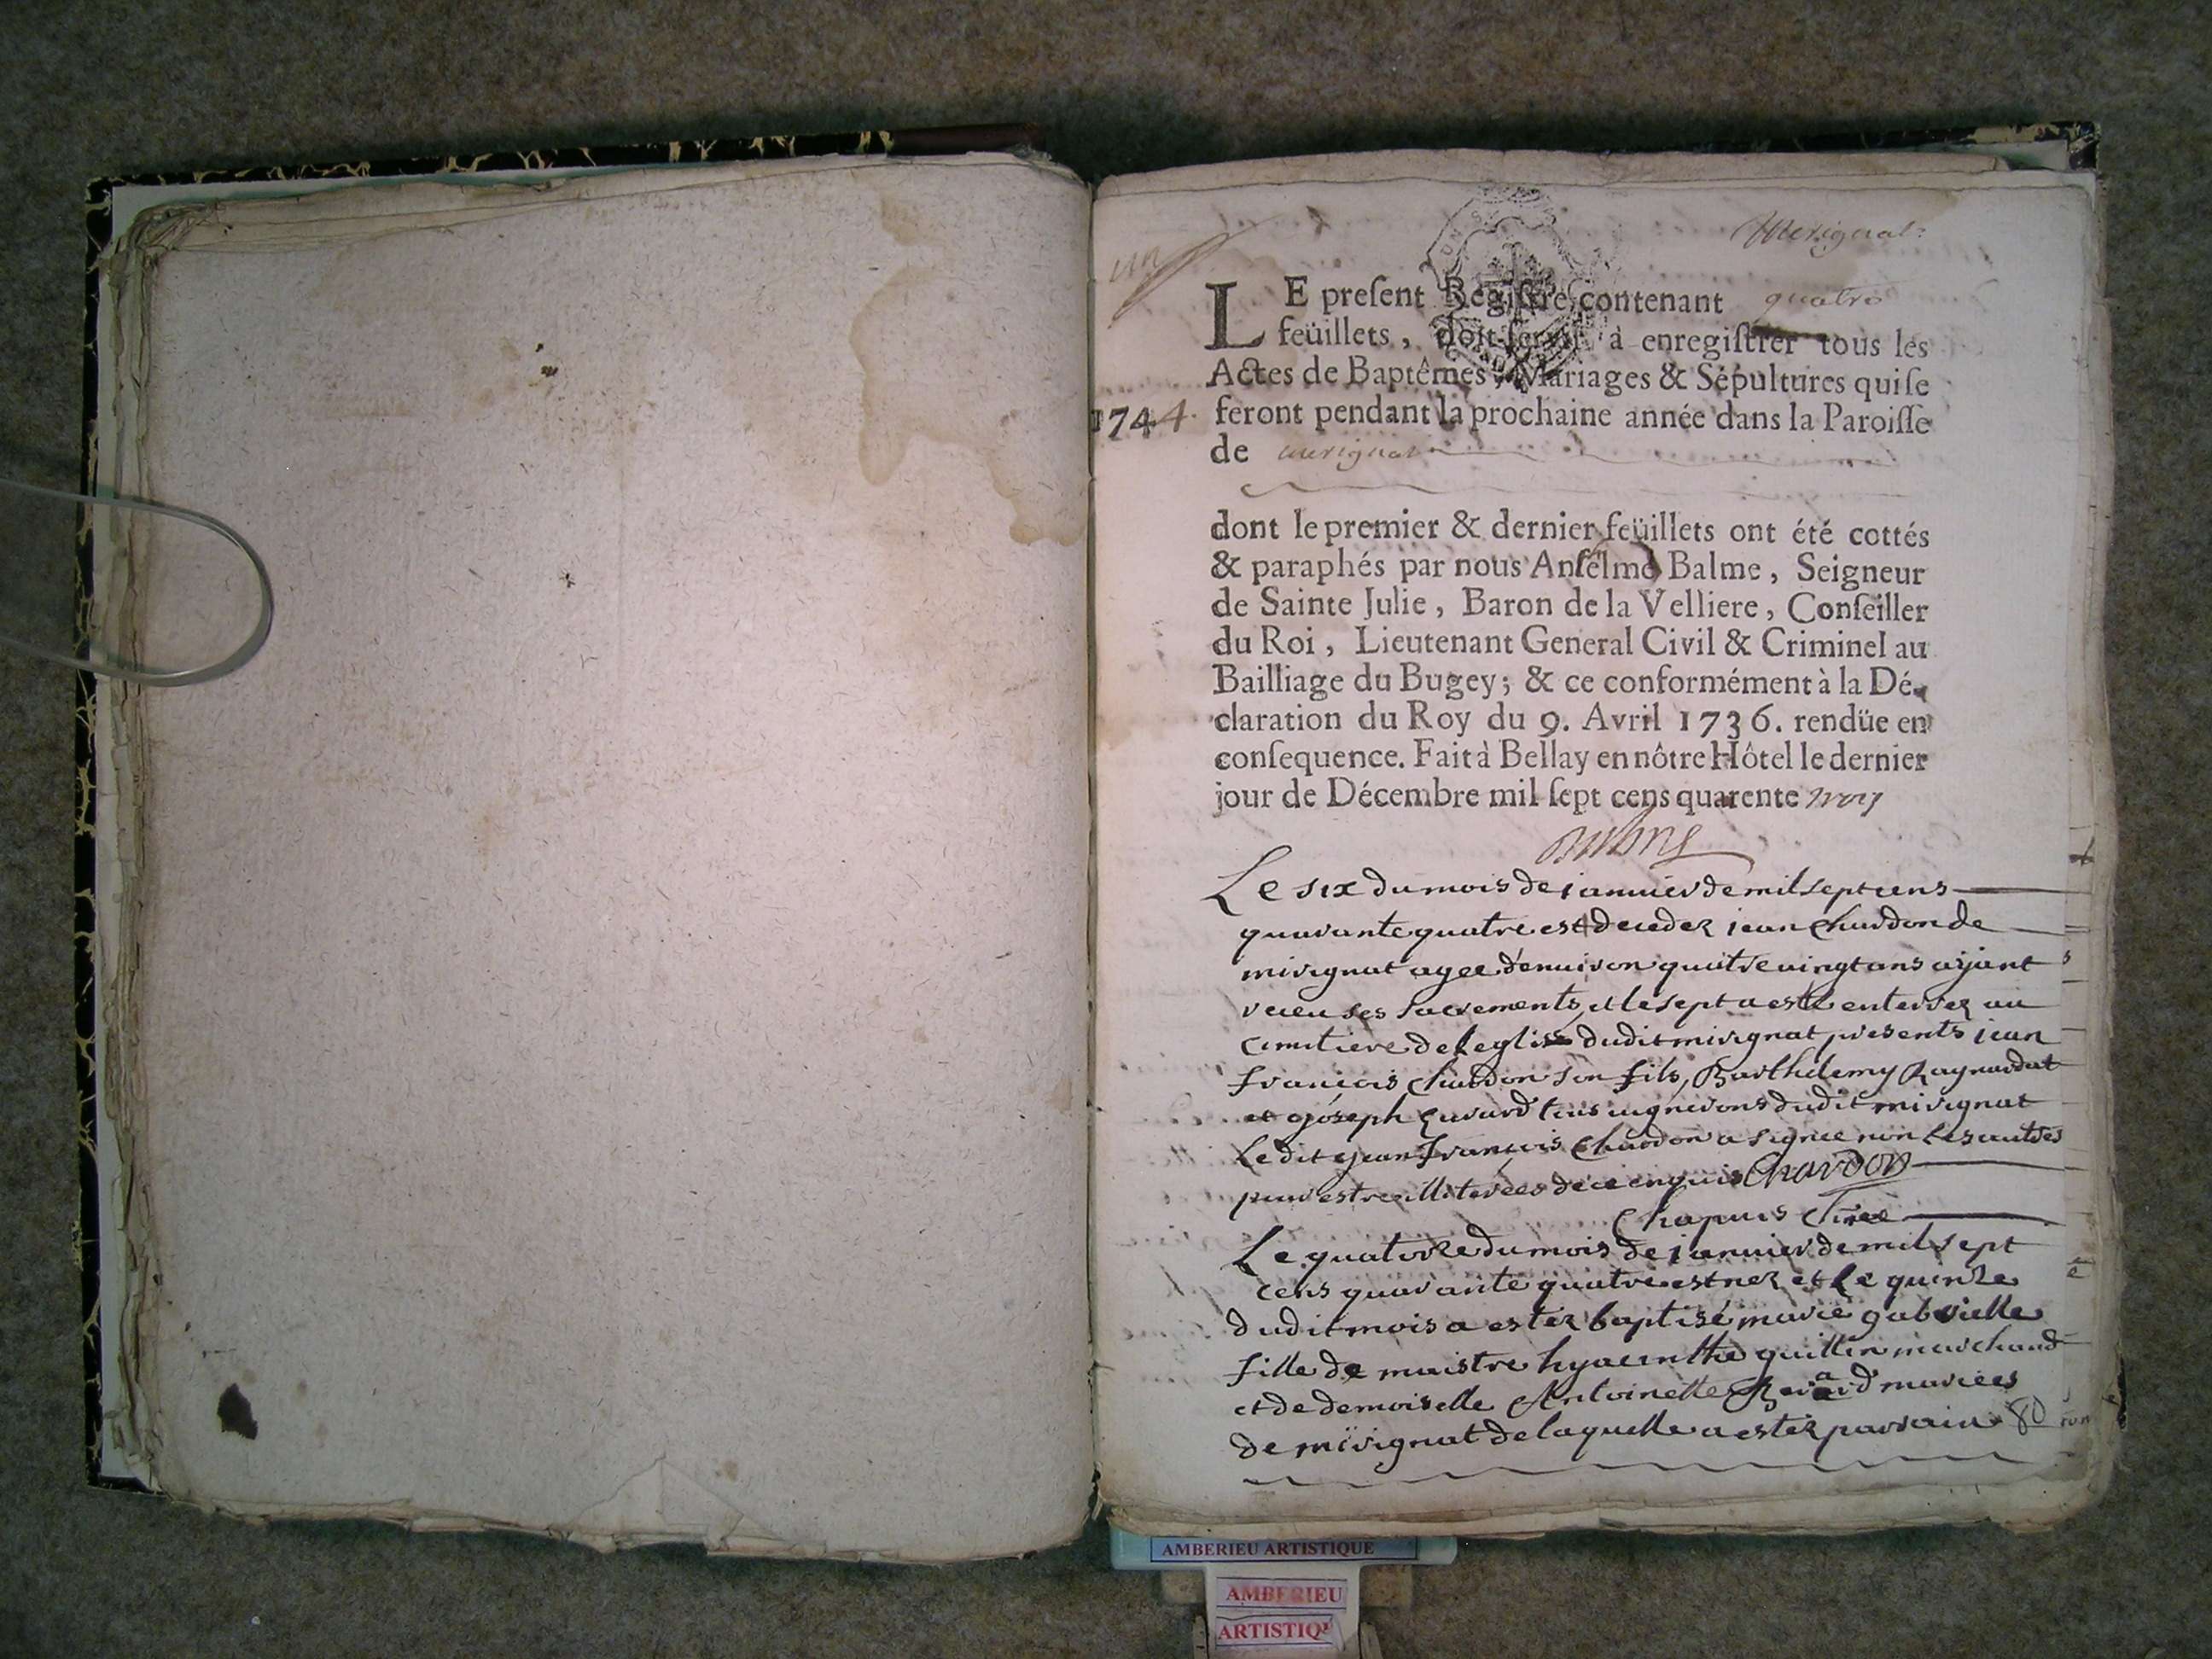 un
Merignat
LE preſent Regiſtre contenant quatre
feüillets, doit ſervir à enregiſtrer tous les
Actes de Baptêmes, Mariages & Sépultures qui ſe
1744. feront pendant la prochaine année dans la Paroiſſe
de merignat
dont le premier & dernier feüillets ont été cottés
& paraphés par nous Anſelme Balme, Seigneur
de Sainte Julie, Baron de la Velliere, Conſeiller
du Roi, Lieutenant General Civil & Criminel au
Bailliage du Bugey; & ce conformément à la Dé-
claration du Roy du 9. Avril 1736. rendüe en
conſequence. Fait à Bellay en nôtre Hôtel le dernier
jour de Décembre mil ſept cens quarente trois
Le six du mois de ianuier de mil sept cens
quarante quatre est decedez iean Chardon de
mirignat agee d'enuiron quatre vingt ans ayant
receu ses sacrements, et le sept a esté enterrez au
cimetiere de l'eglise dudit mirignat presents iean
francois Chardon son fils, Barthelemy Raynardat
et joseph Eurard tous uignerons dudit mirignat
Le dit jean francois Chardon a signee non les autres
pour estre illiterées de ce enquis Chardon
Chapuis Curee
Le quatorze du mois de ianuier de mil sept
cens quarante quatre est nez et le quinze
dudit mois a estez baptisé marie gabrielle
fille de maistre hyacinthe guillin marchand
et de demoiselle Antoinette mariees
de mirignat de laquelle a estez parrain
80
AMBERIEU ARTISTIQUE
AMBERIEU
ARTISTIQ